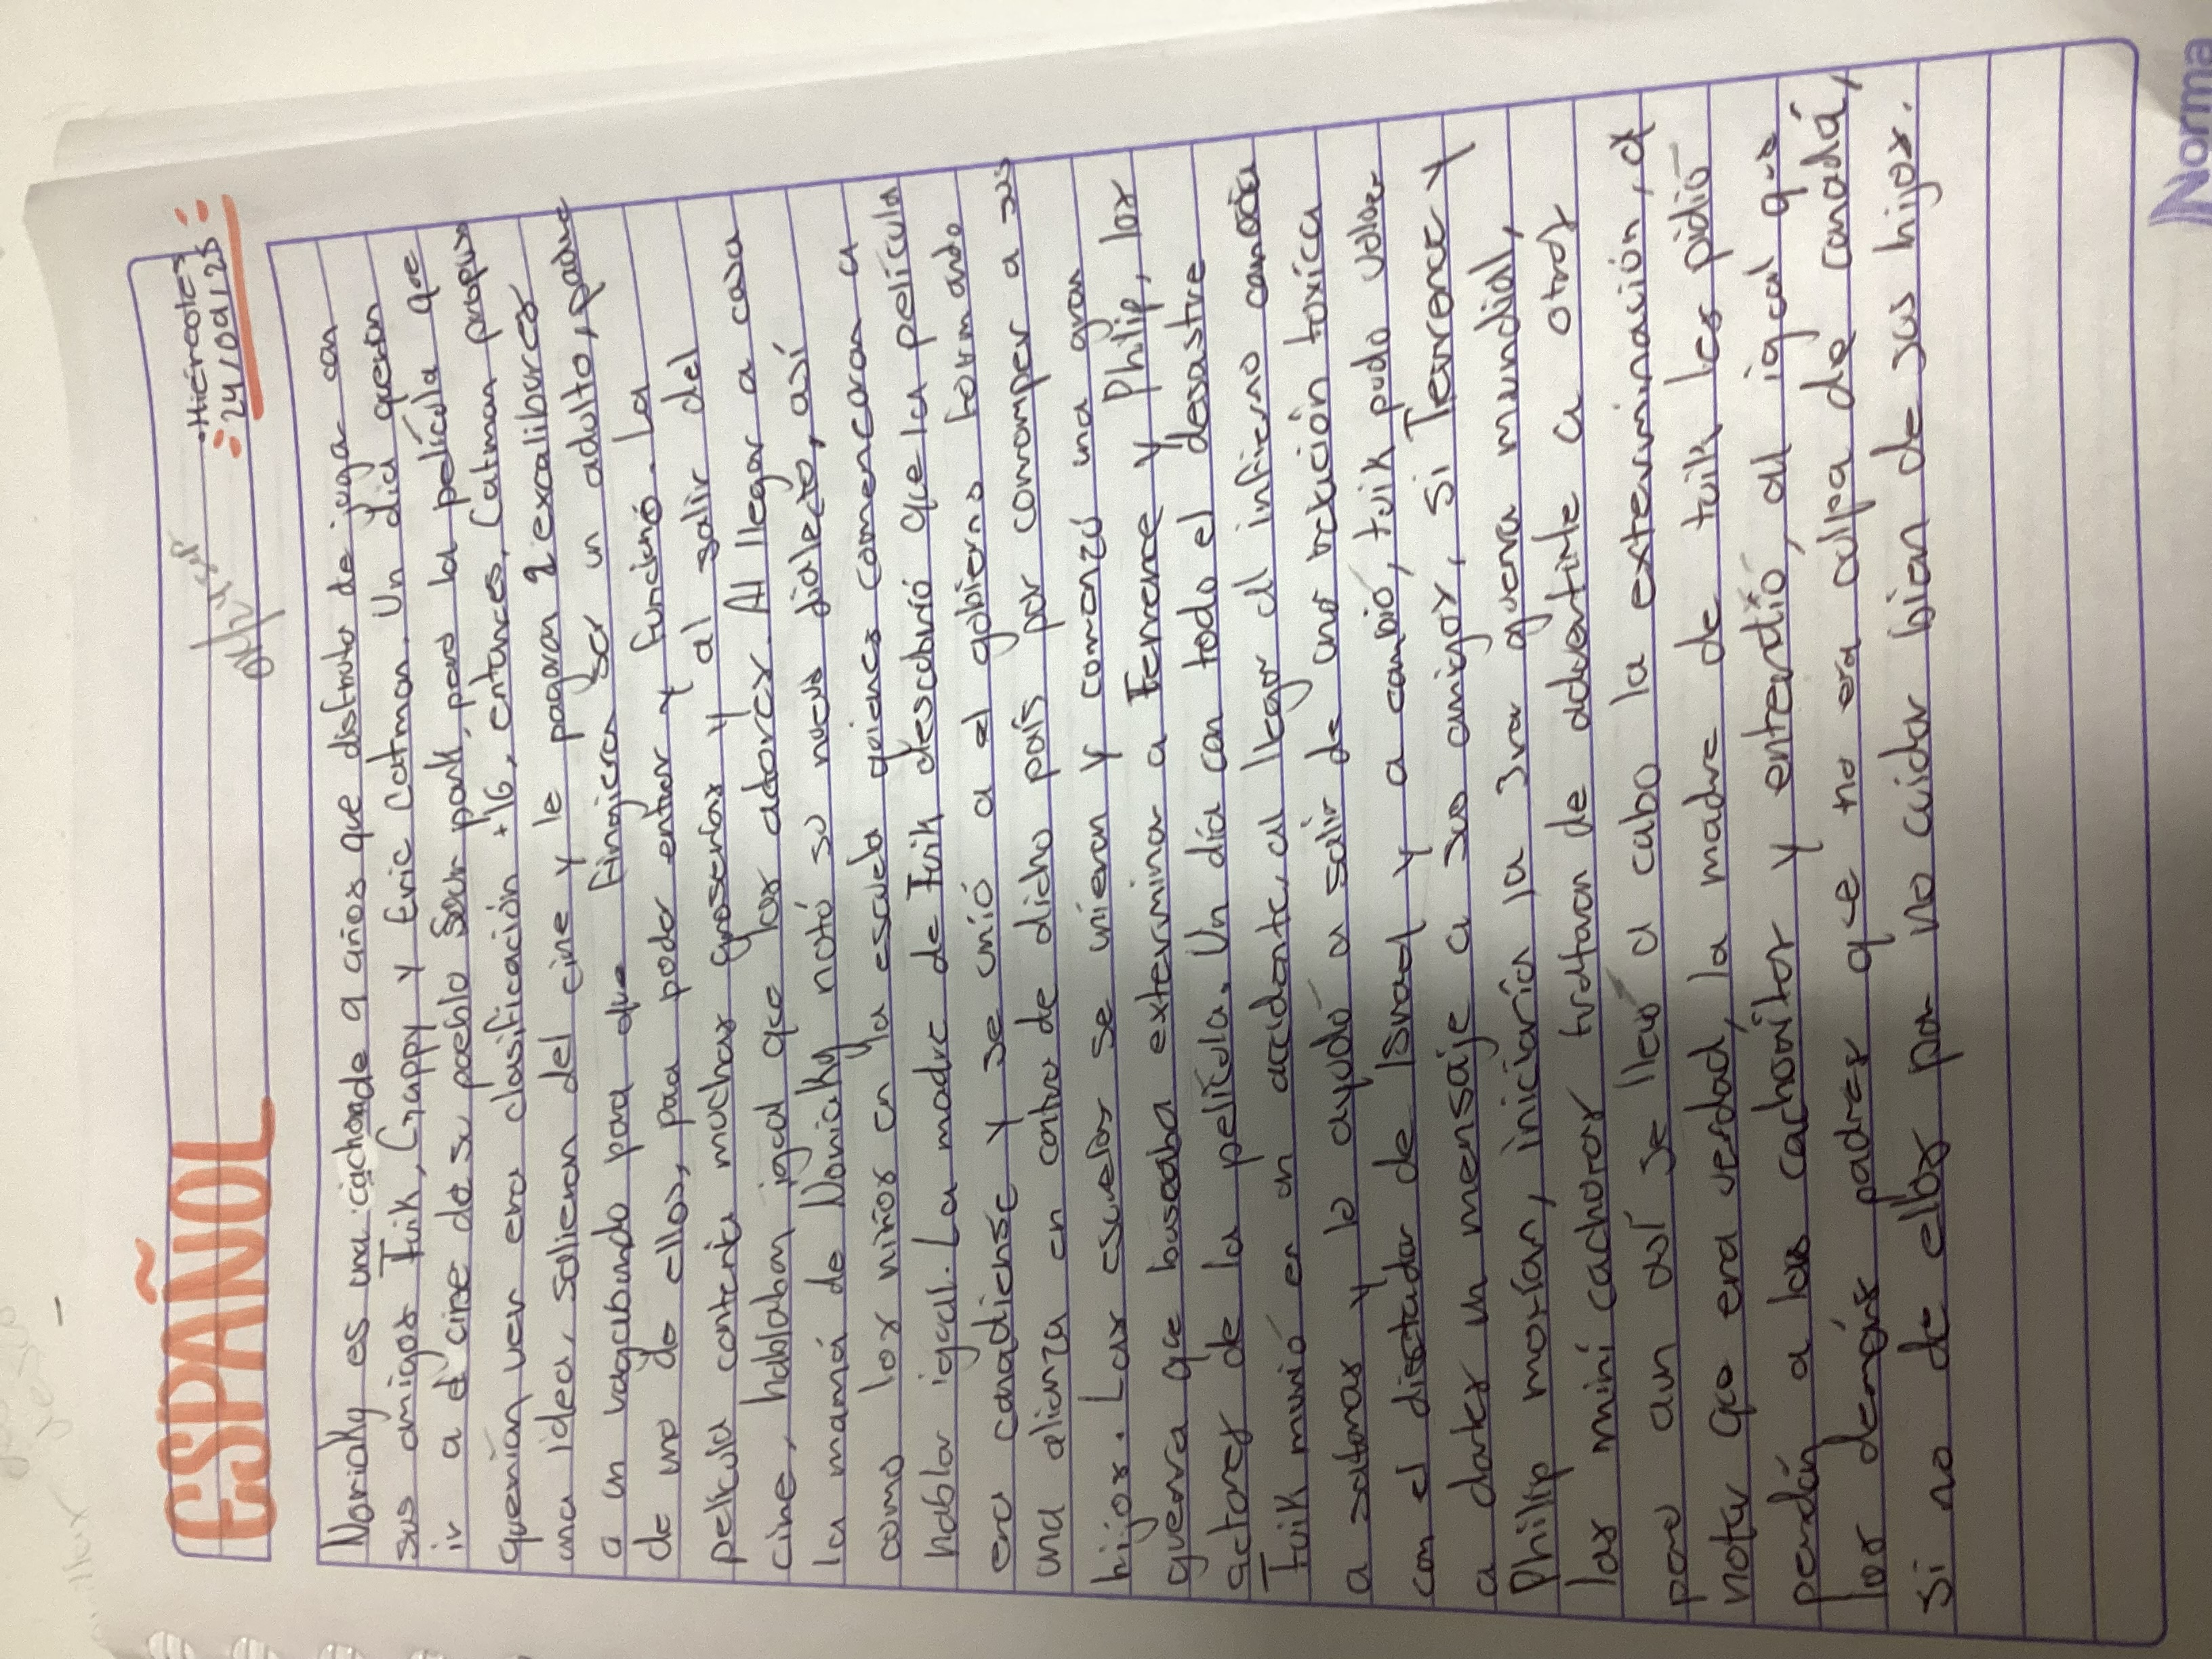 ESPAÑOL
•Miércoles
24/09/25
Noricky es una cachonde 9 años que disfruta de juga con
sus amigos Tuik, Grappy y Eric Catman. Un día querían
ir a el cine de su pueblo Sour park, para la película que
querían ver era clasificación +16, entonces, Catman propuso
una idea, salieron del cine y le pagaron 2 excaliburcs
a un vagabundo para que fingiera ser un adulto, padre
de uno de ellos, para poder entrar y funcionó. La
película contenía muchas groserías y al salir del
cine, hablaban igual que los actores. Al llegar a casa
la mamá de Noricky notó su nuevo dialecto, así
como los niños en la escuela quienes comenzaron a
hablar igual. La madre de Tuik descubrió que la película
era canadiense y se unió a el gobierno formando
una alianza en contra de dicho país por corromper a sus
hijos. Las escuelas se unieron y comenzó una gran
guerra que buscaba exterminar a Terrence y Philip, los
actores de la película. Un día con todo el desastre
Tuik murió en un accidente, al llegar al infierno conocía
a satanas y lo ayudó a salir de una relación toxíca
con el dictador de Israel y a cambió, tuik pudo volver
a darles un mensaje a sus amigos, si Terrence y
Philip morían, iniciaría la 3ra guerra mundial,
los mini cachoros trataron de advertirle a otros
pero aun así se llevó a cabo la exterminasión, al
notar que era verdad, la madre de tuik les pidió
perdón a los cachorritos y entendió, al igual que
los demás padres que no era culpa de canadá,
si no de ellos por no cuidar bien de sus hijos.
Norma